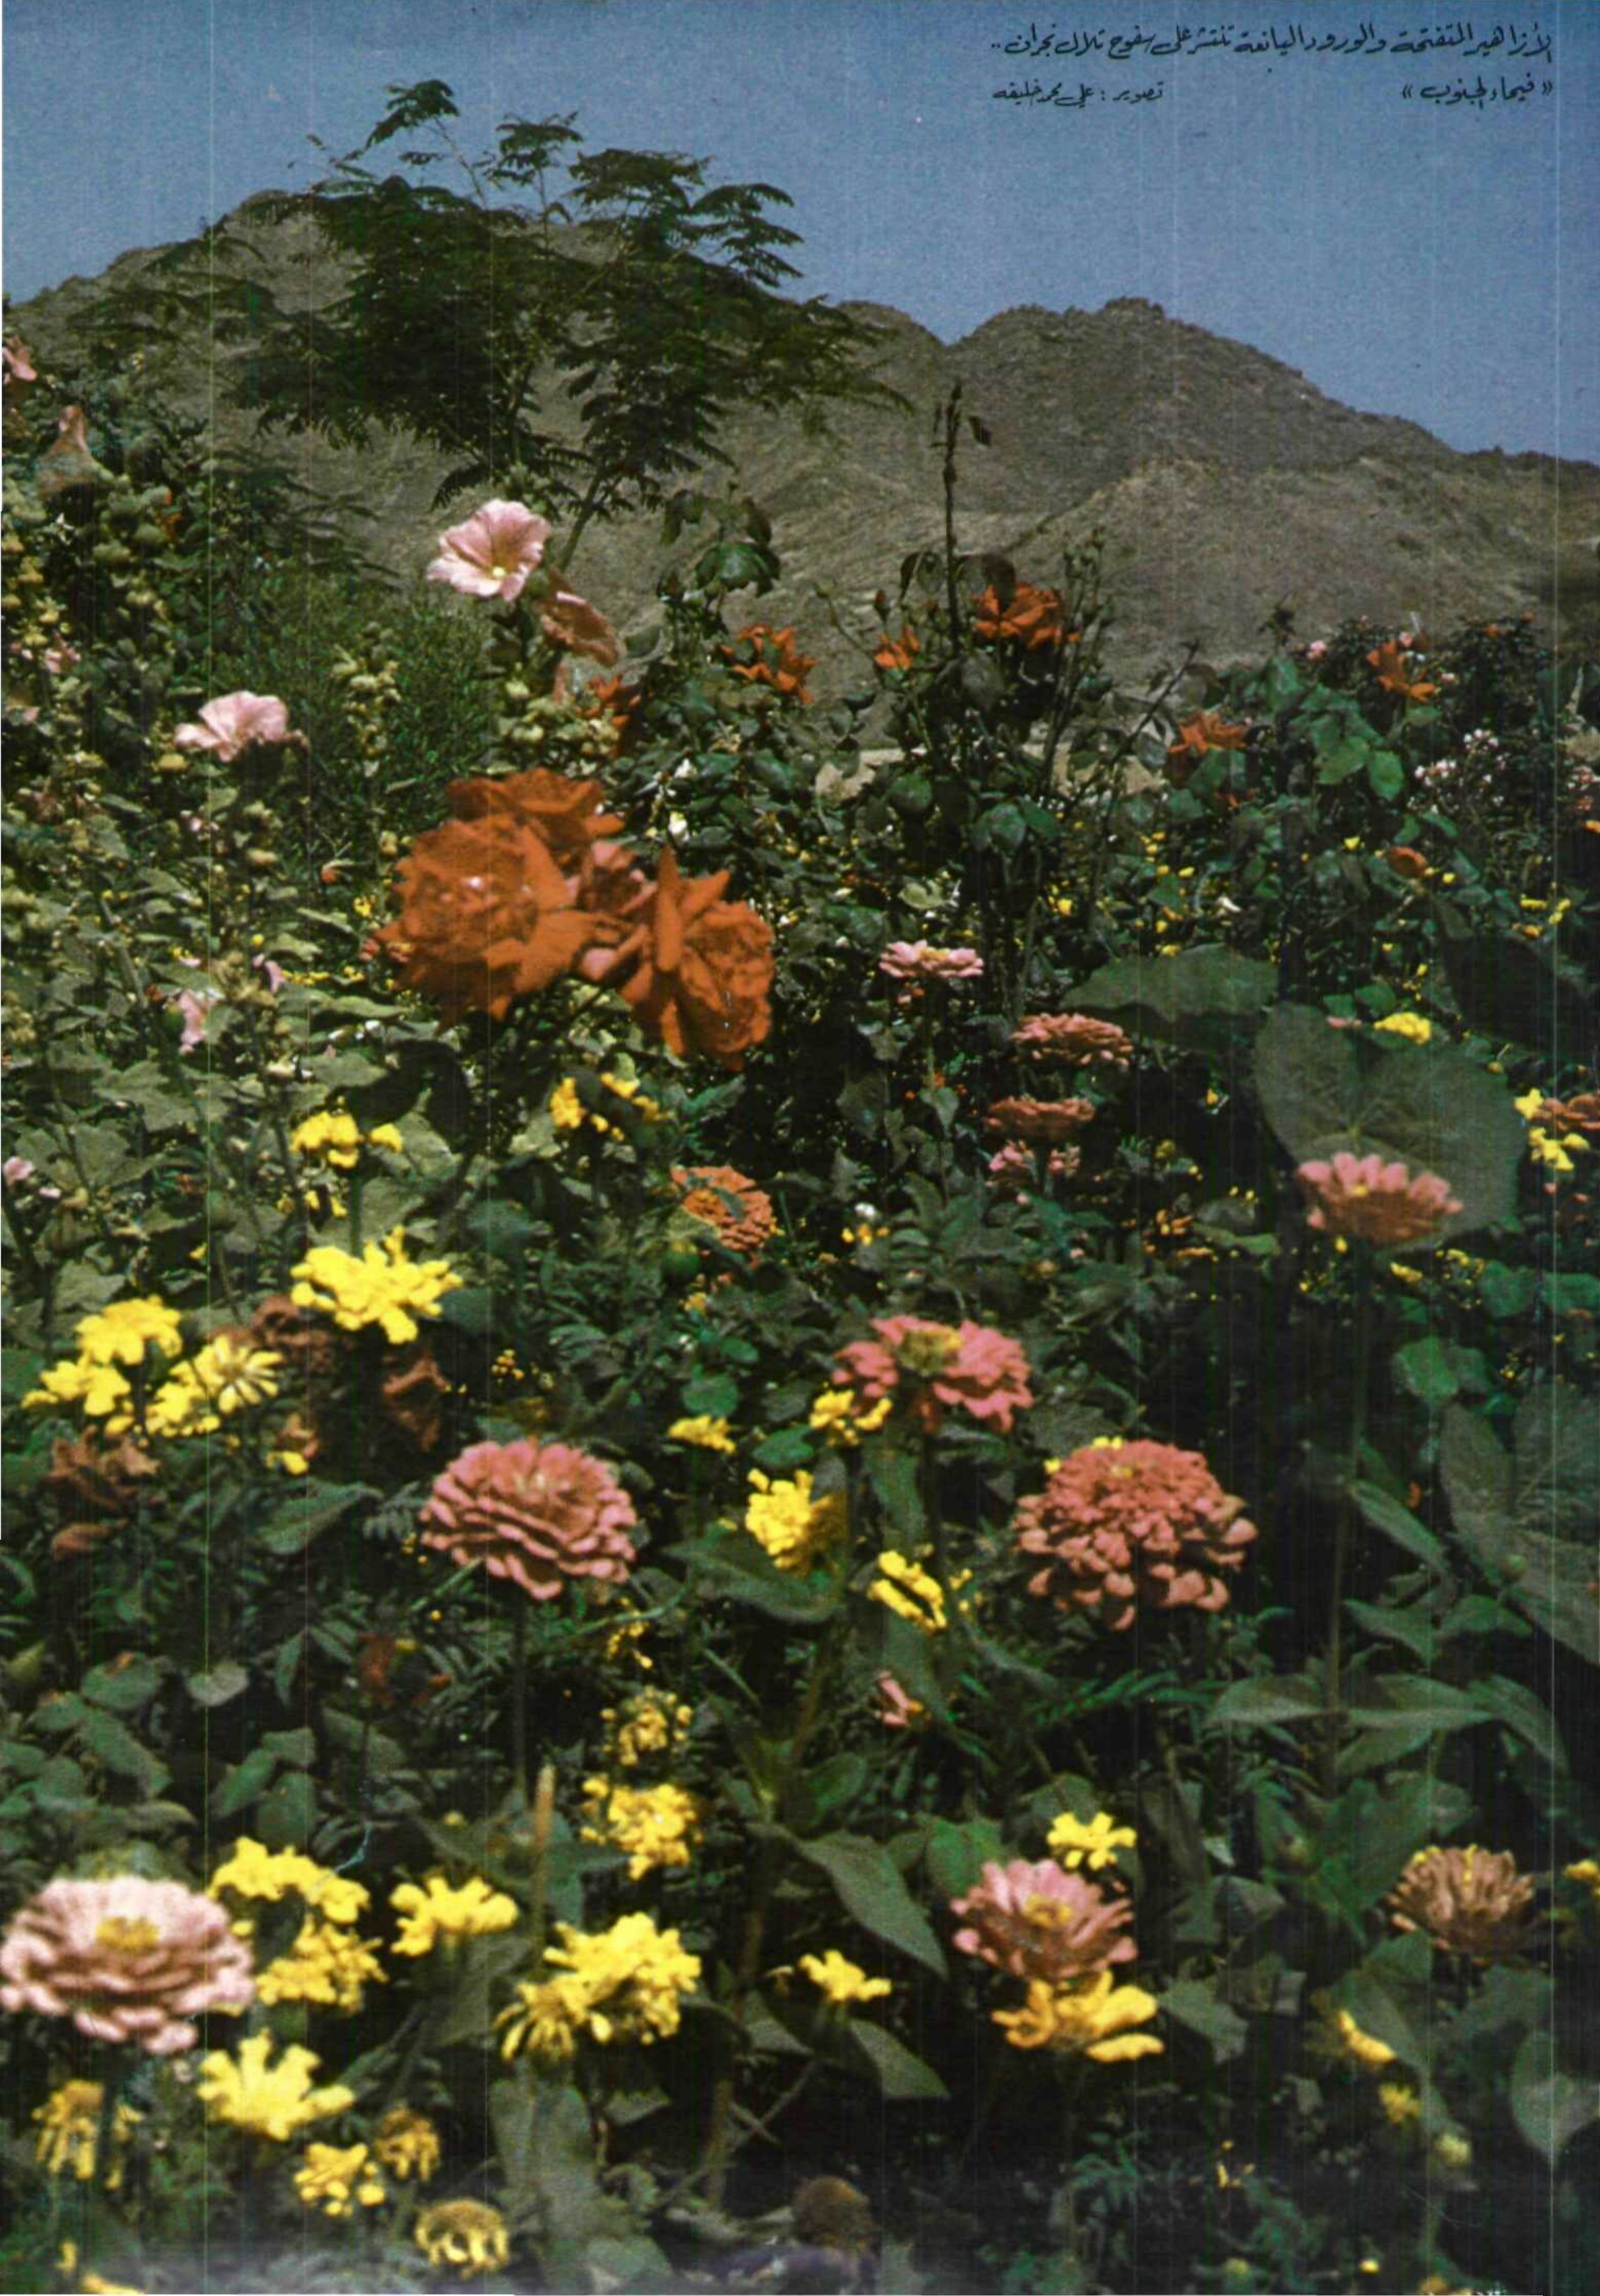 الأزاهير المتفتحة والورود اليانعة تنتشر على سفوح تلال نجران ..
« فيحاء الجنوب »
تصوير : علي محمد خليفه